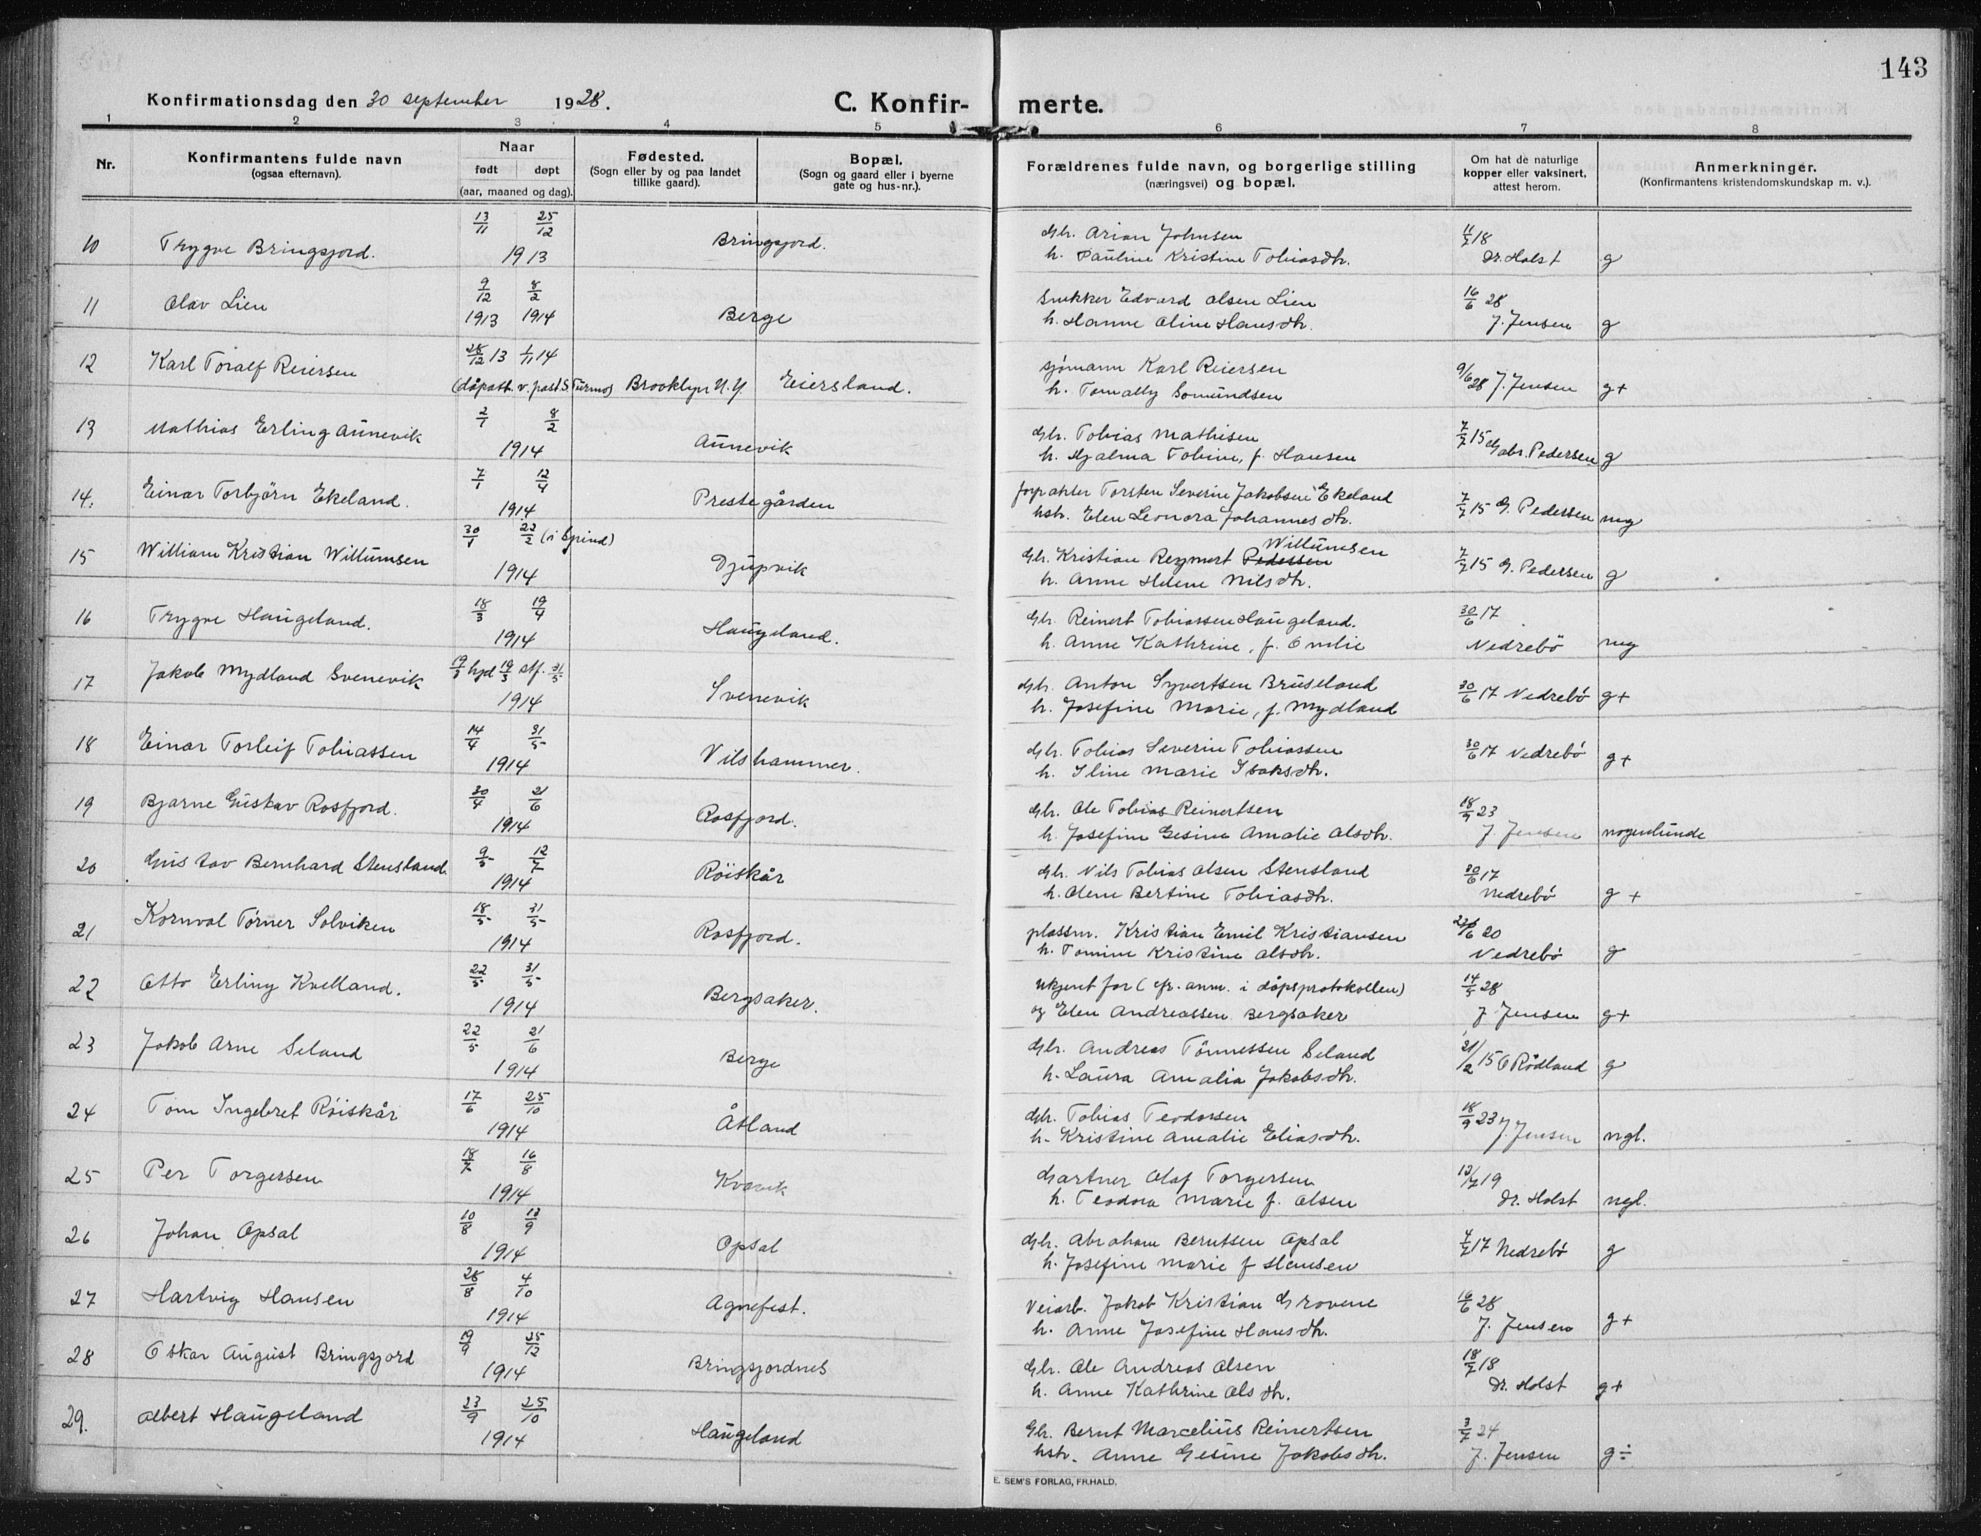 143
Konfirmationsdag den 30 september 1928. C. Konfir- merte.
1 2 3 4 5 6 7 8
Nr. Konfirmantens fulde navn (ogsaa efternavn). Naar født døpt (aar, maaned og dag). Fødested. (Sogn eller by og paa landet tillike gaard). Bopæl. (Sogn og gaard eller i byerne gate og hus-nr.). Forældrenes fulde navn, og borgerlige stilling (næringsvei) og bopæl. Om hat de naturlige kopper eller vaksinert, attest herom. Anmerkninger. (Konfirmantens kristendomskundskap m. v.).
10 Trygve Bringsjord. 13/11 25/12 1913 Bringsjord. Gbr. Arian Johnsen 11/7 18
h. Pauline Kristine Tobiasdtr. Dr. Holst g
11 Olav Lien 9/12 1913 8/2 1914 Berge Snekker Edvard Olsen Lien 16/6 28
h. Hanne Oline Hansdtr. J. Jensen g
12 Karl Toralf Reiersen 28/12 13 1/11 14 sjømann Karl Reiersen
(dåpatt. v. past. S. Turmo) Brooklyn N.Y. Eiersland. h. Tomally Gomundsen 9/6 28 J. Jensen g+
13 Mathias Erling Aunevik 2/1 8/2 1914 Aunevik Gbr. Tobias Mathisen 7/7 15 Gabr. Pedersen g
h. Hjalma Tobine, f. Hansen
14. Einar Torbjørn Ekeland. 7/1 12/4 1914 Prestegården forpakter Torsten Severin Jakobsen Ekeland
hstr. Elen Leonora Johannesdtr. 7/7 15 G. Pedersen mg
15 William Kristian Willumsen 30/1 22/2 (i Spind) 1914 Djupvik Gbr. Kristian Reymert Pedersen Willumsen
h. Anne Helene Nilsdtr. 7/7 15 G. Pedersen g
16 Trygve Haugeland. 18/3 19/4 1914 Haugeland. Gbr. Reinert Tobiassen Haugeland. 30/6 17
h. Anne Kathrine, f. Omlie Nedrebö mg
17 Jakob Mydland Svenevik 19/3 hjd 19/3 stf. 31/5 1914 Svenevik Gbr. Anton Syvertsen Bruseland
h. Josefine Marie, f. Mydland 30/6 17 Nedrebö g+
18 Einar Torleif Tobiassen 14/4 31/5 1914 Vilshammer. Gbr. Tobias Severin Tobiassen 30/6 17 Nedrebö
h. Iline Marie Isaksdtr. g+
19 Bjarne Gustav Rosfjord. 30/4 21/6 1914 Rosfjord. Gbr. Ole Tobias Reinertsen 18/9 23
h. Josefine Gesine Amalie Olsdtr. J. Jensen nogenlunde
20 Gustav Bernhard Stensland. 9/5 12/7 1914 Röiskår Gbr. Nils Tobias Olsen Stensland 30/6 17
h. Olene Bertine Tobiasdtr. Nedrebö g+
21 Kornval Tørner Solviken 18/5 31/5 1914 Rosfjord. plassm. Kristian Emil Kristiansen 20
h. Tomine Kristine Olsdtr. Nedrebö g
22 Otto Erling Kvelland. 22/5 31/5 1914 Bergsaker. Ukjent far (cfr. anm. i dåpsprotokollen) 14/5 28
og Elen Andreassen Bergsaker J. Jensen g+
23 Jakob Arne Seland 22/5 21/6 1914 Berge Gbr. Andreas Tønnessen Seland
h. Laura Amalia Jakobsdtr. 21/2 15 O Rödland g
24 Tom Ingebret Röiskår 17/6 25/10 1914 Åtland Gbr. Tobias Teodorsen 18/9 23 J. Jensen
h. Kristine Amalie Eliasdtr. ngl.
25 Per Torgersen 18/7 16/8 1914 Kvavik Gartner Olaf Torgersen 19
h. Teodora Marie f. Olsen Dr. Holst ngl.
26 Johan Opsal 10/8 13/9 1914 Opsal Gbr. Abraham Berntsen Opsal
h. Josefine Marie f Hansen 4/7 17 Nedrebö g
27 Hartvig Hansen 28/8 4/10 1914 Agnefest. Veiarb. Jakob Kristian Grovene 16/6 28
h. Anne Josefine Hansdtr. J. Jensen g+
28 Oskar August Bringsjord 19/9 25/12 1914 Bringsjordnes Gbr. Ole Andreas Olsen 18/7 18
h. Anne Kathrine Olsdtr. Dr. Holst g+
29. Albert Haugeland 23/9 25/10 1914 Haugeland Gbr. Bernt Marcelius Reinertsen 3/7 24
hstr. Anne Gesine Jakobsdtr. J. Jensen g÷
E. SEM'S FORLAG, FR.HALD.